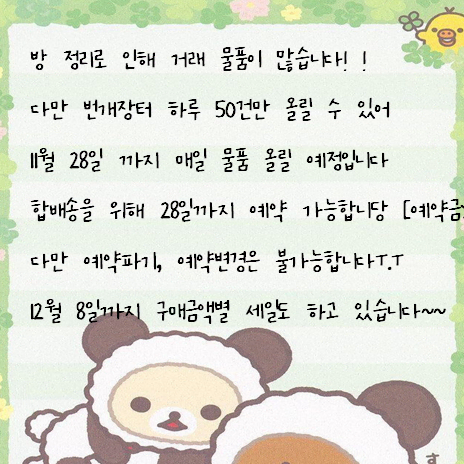 방 정리로 인해 거래 물품이 많습니다! !
다만 번개장터 하루 50건만 올릴 수 있어
11월 28일 까지 매일 물품 올릴 예정입니다
합배송을 위해 28일까지 예약 가능합니당 [예약금
다만 예약파기, 예약변경은 불가능합니다T.T
12월 8일까지 구매금액별 세일도 하고 있습니다~~